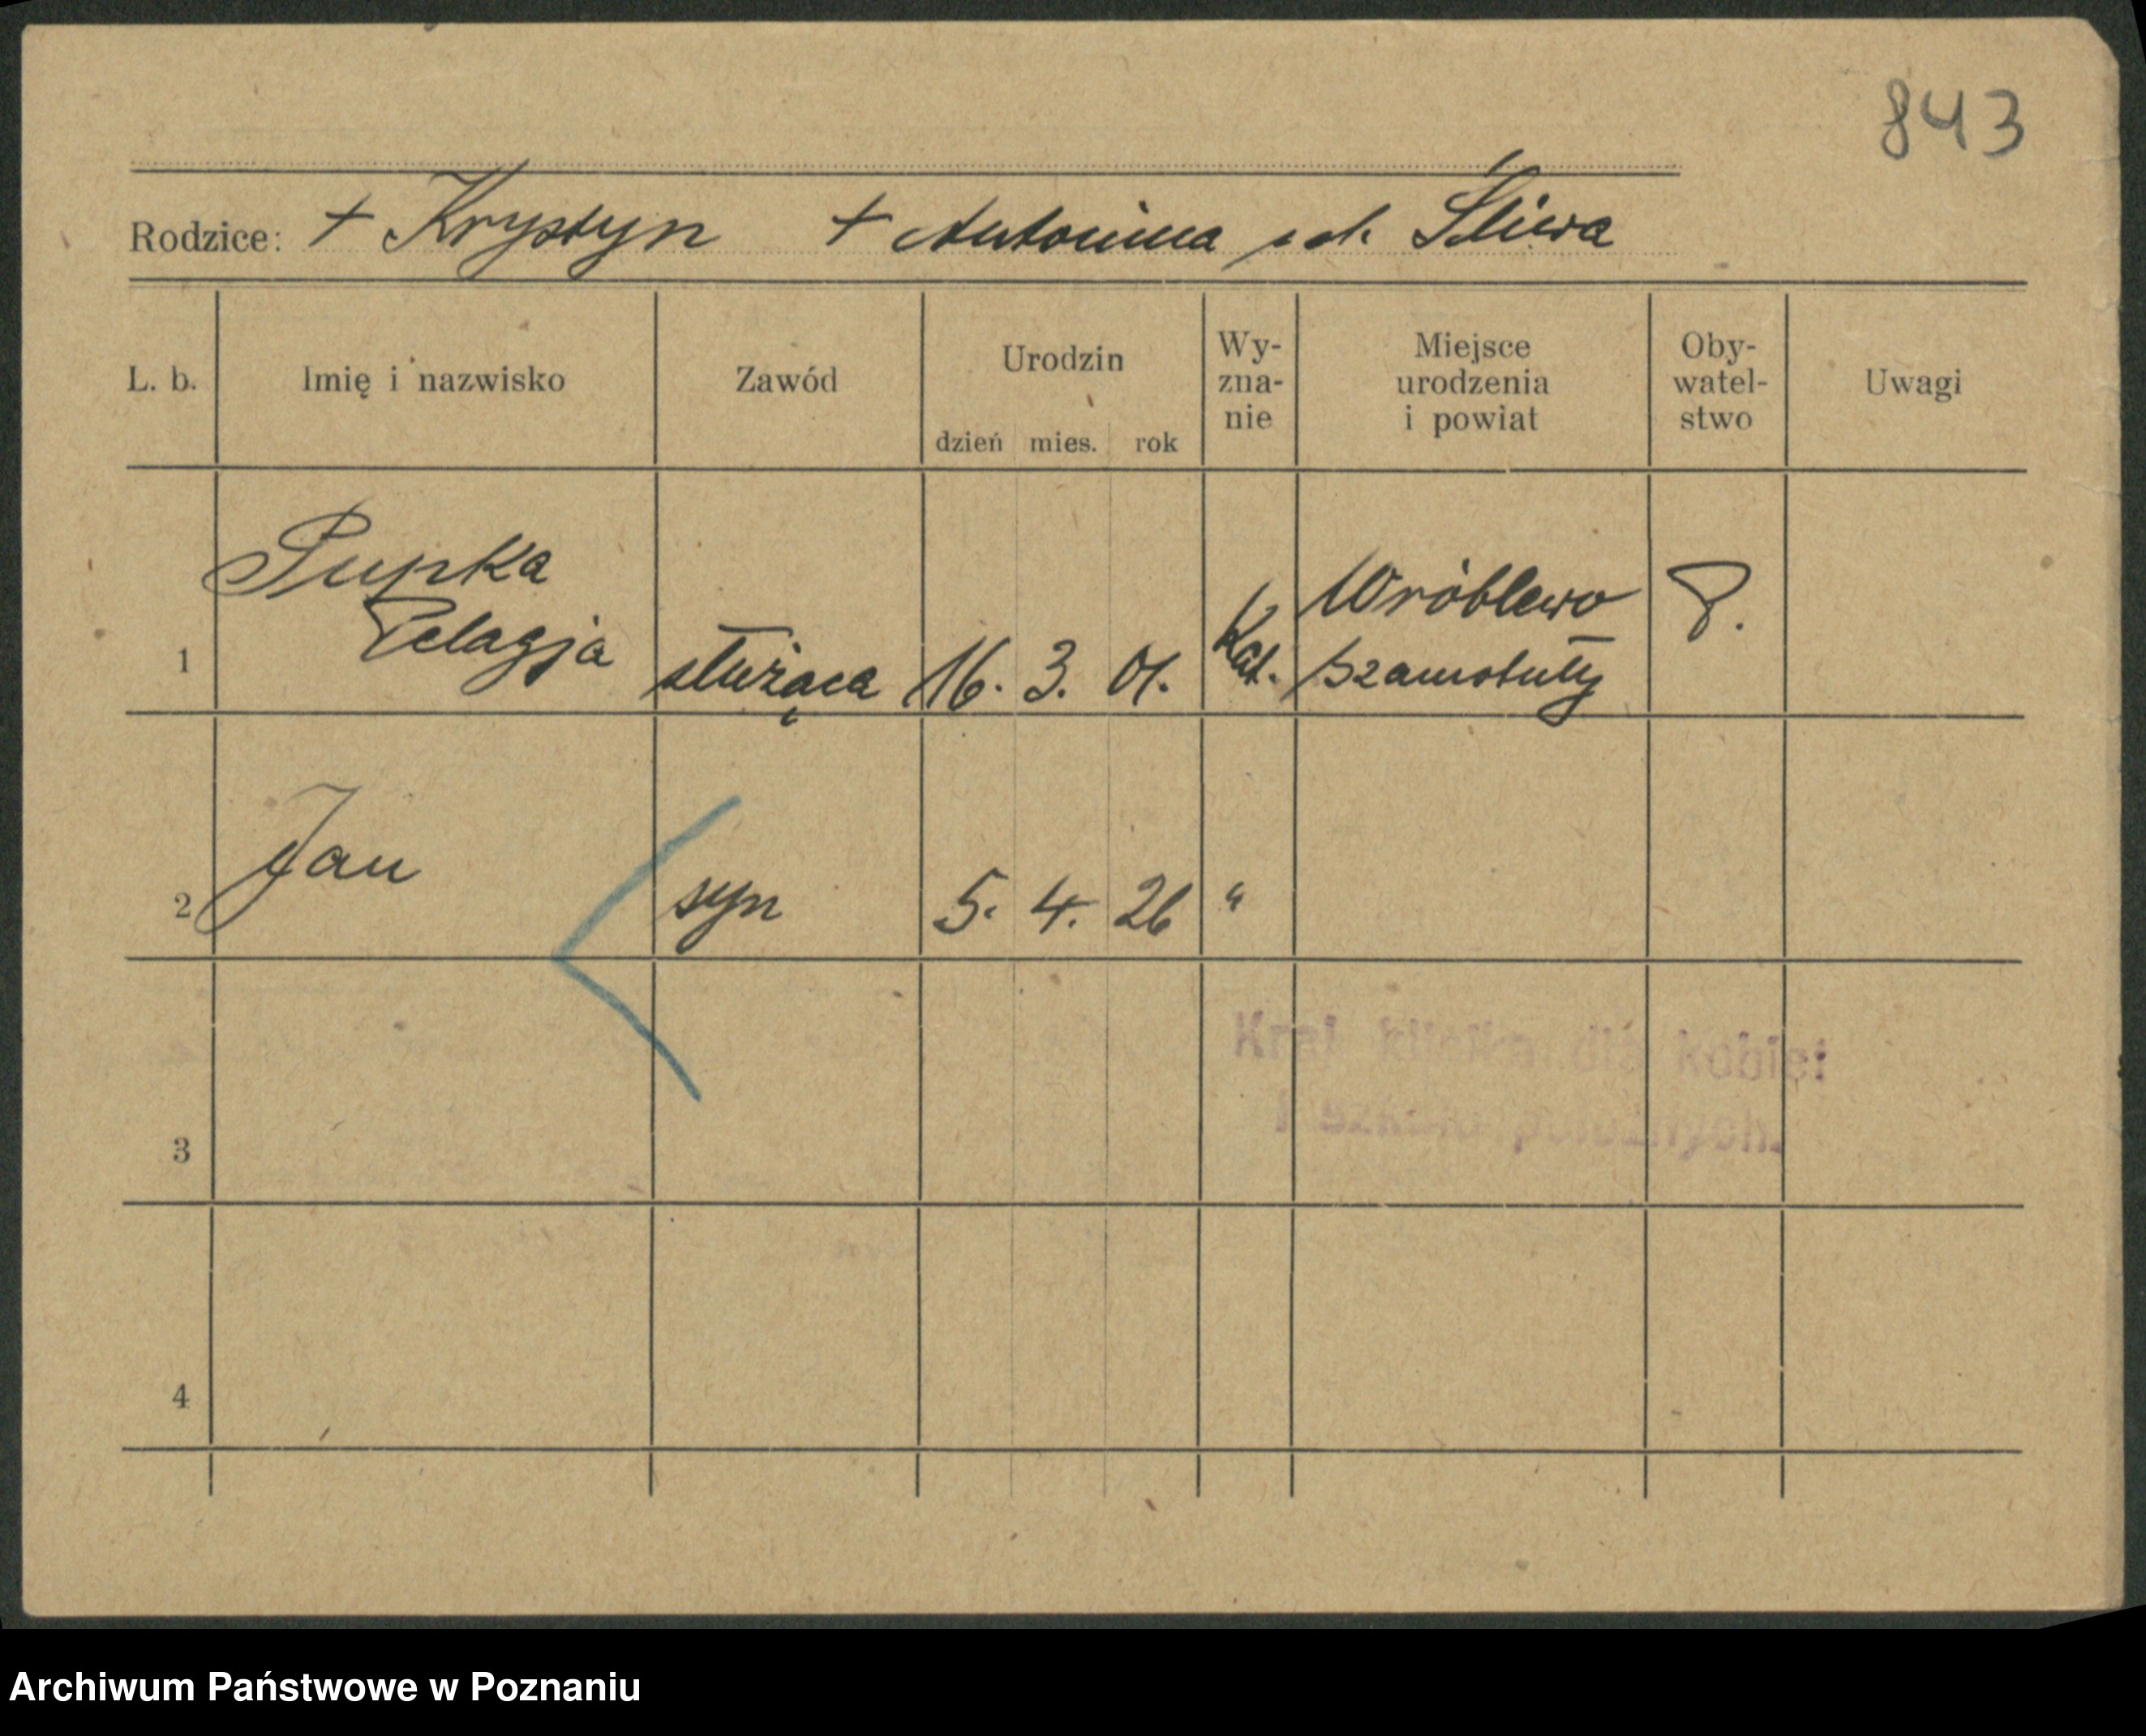 843
Rodzice: + Krystyn + Antonina Śliwa
L. b. Imię i nazwisko Zawód Urodzin dzień mies. rok Wy-zna-nie Miejsce urodzenia i powiat Oby-watel-stwo Uwagi
Pupka
1 Pelagja służąca 16. 3. 01. Kat. Wróblewo Szamotuły P.
2 Jan syn 5. 4. 26 "
Kraj. klinika dla kobiet
i szkoła położnych.
3
4
Archiwum Państwowe w Poznaniu